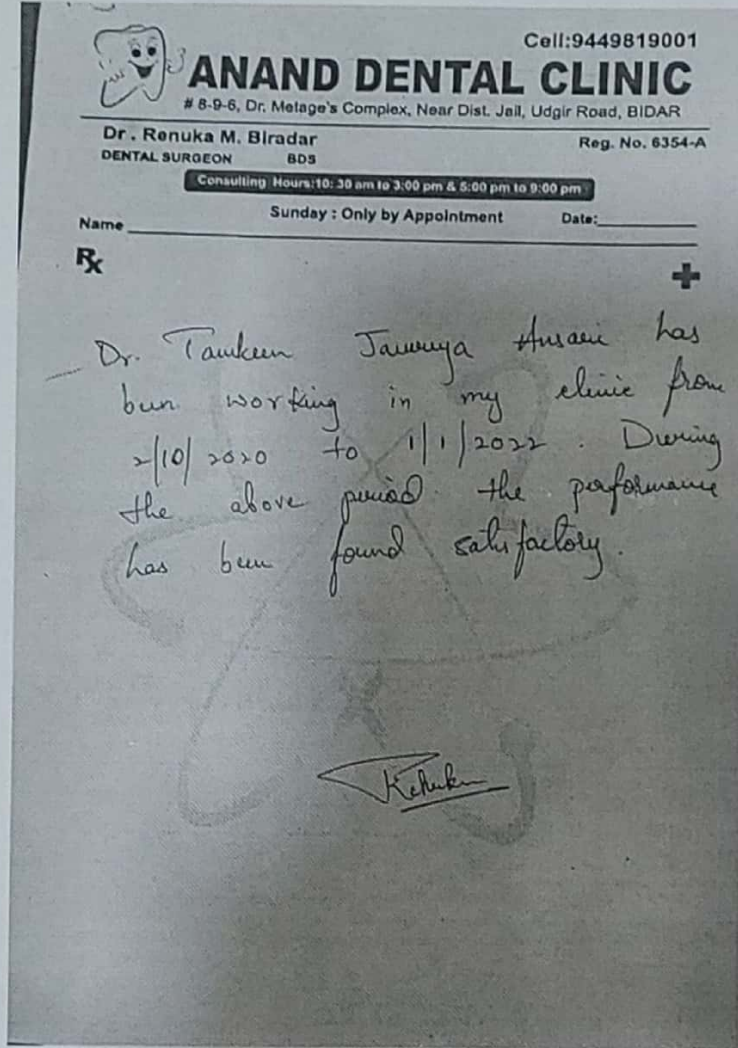 Cell:9449819001
ANAND DENTAL CLINIC
# 8-9-6, Dr. Metage's Complex, Near Dist. Jail, Udgir Road, BIDAR
Dr. Renuka M. Biradar
Reg. No. 6354-A
DENTAL SURGEON BDS
Consulting Hours:10: 30 am to 3:00 pm & 5:00 pm to 9:00 pm
Sunday : Only by Appointment
Name
Date:
Rx
Dr. Tamkeen Ansari has
been working in my clinic from
2/10/2020 to 1/1/2022. During
the above period the performance
has been found satisfactory.